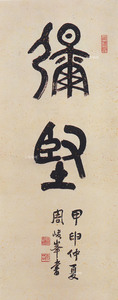 彌堅
甲申仲夏
周俊峯書